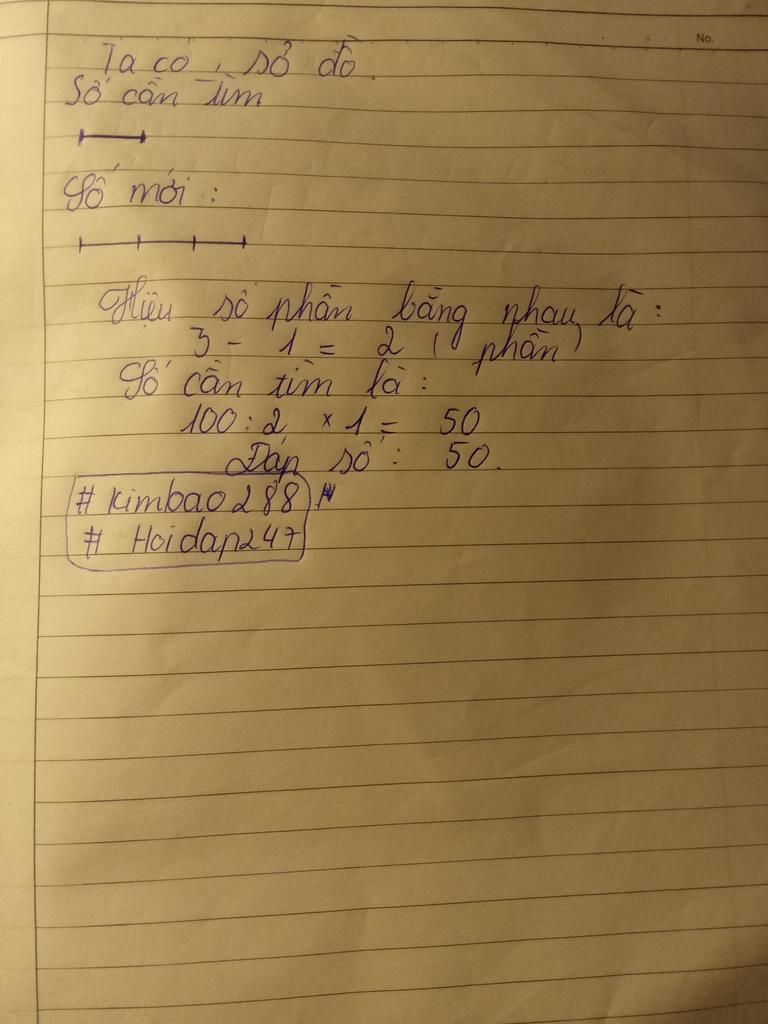 No.
Ta có sơ đồ.
Số cần tìm
Số mới :
Hiệu số phần bằng nhau là :
3 - 1 = 2 ( phần )
Số cần tìm là :
100 : 2 × 1 = 50
Đáp số : 50.
# kimbao288
# Hoidap247